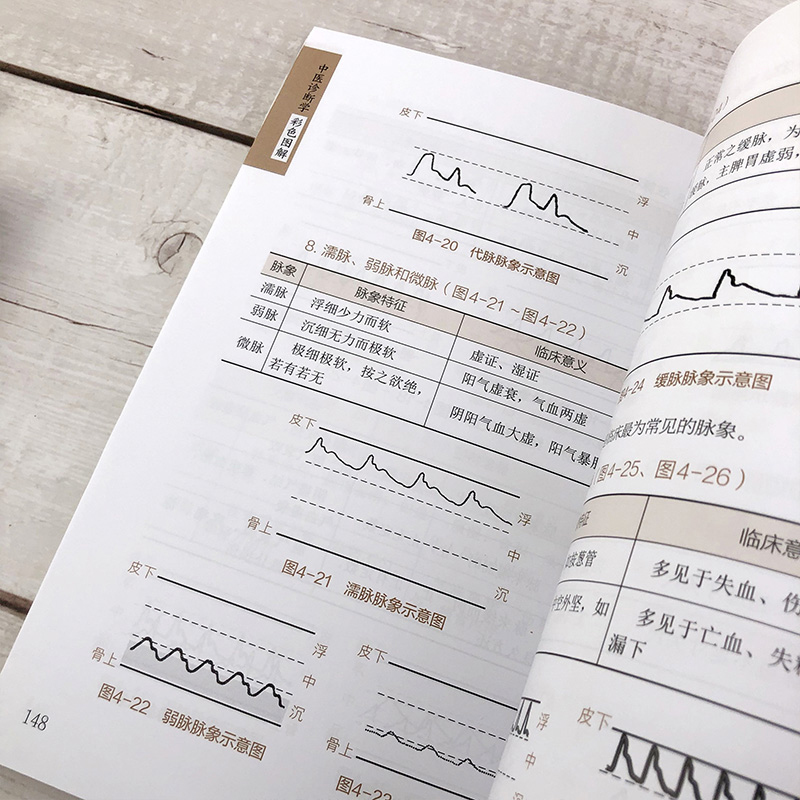 中医诊断学
彩色图解
皮下
浮
中
沉
骨上
图4-20 代脉脉象示意图
8. 濡脉、弱脉和微脉（图4-21～图4-22）
脉象 脉象特征 临床意义
濡脉 浮细少力而软 虚证、湿证
弱脉 沉细无力而极软 阳气虚衰，气血两虚
微脉 极细极软，按之欲绝，
若有若无 阴阳气血大虚，阳气暴
皮下
浮
中
沉
骨上
图4-21 濡脉脉象示意图
皮下
浮
中
沉
骨上
图4-22 弱脉脉象示意图
皮下
浮
中
骨上
148
正常之缓脉，为
脉，主脾胃虚弱，
4-24 缓脉脉象示意图
床最为常见的脉象。
图4-25、图4-26）
征 临床意
按葱管 多见于失血、伤
空外坚，如
多见于亡血、失
漏下
皮下